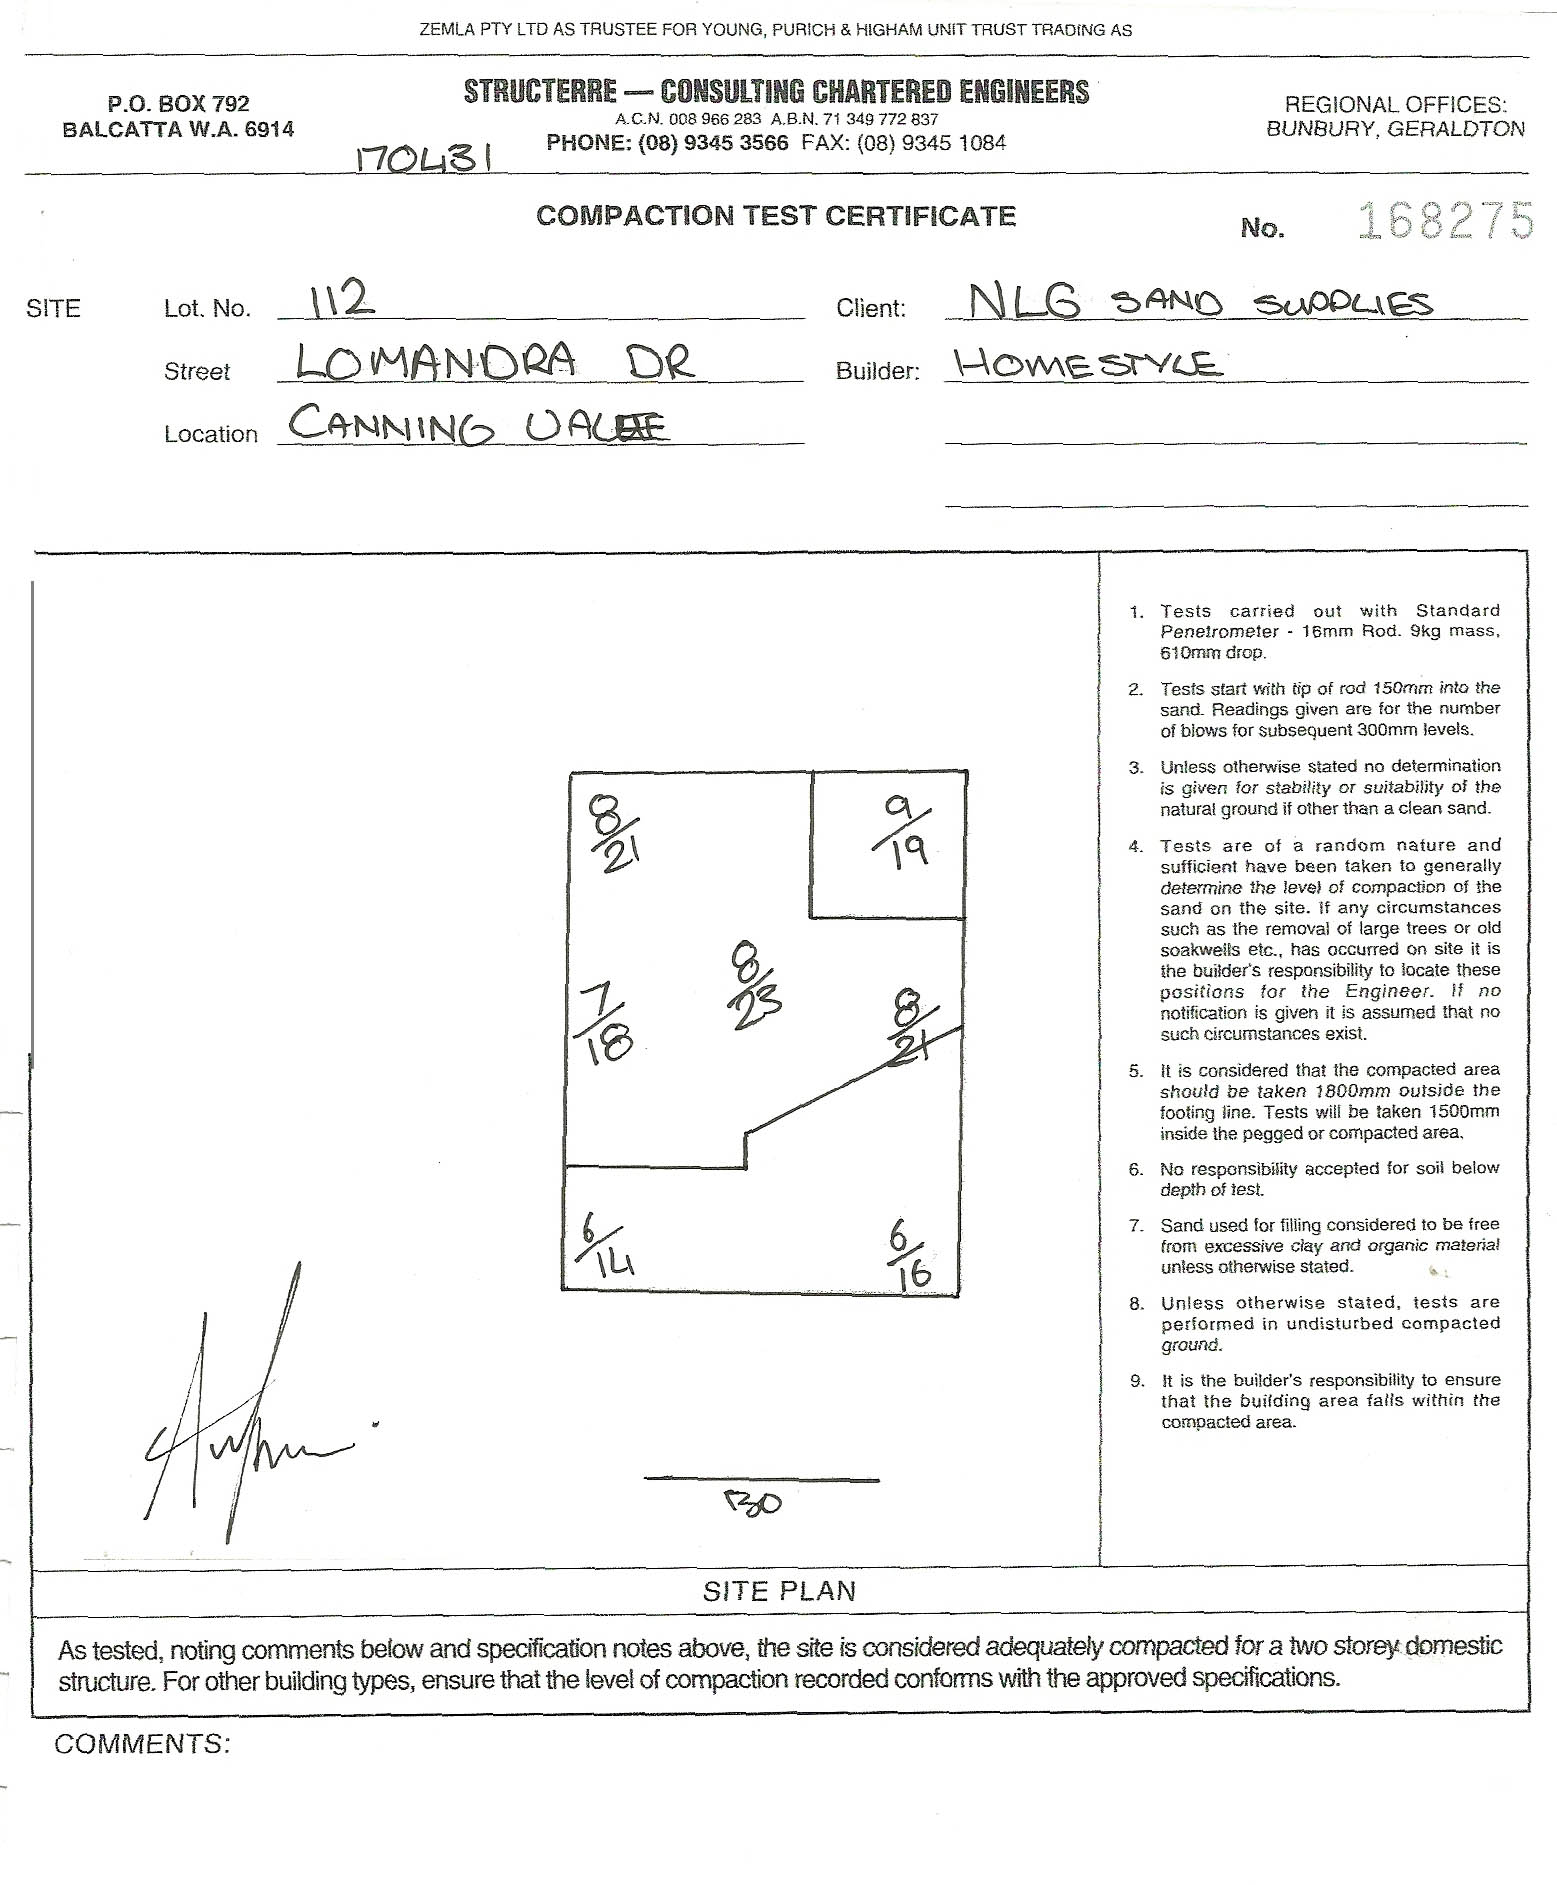 ZEMLA PTY LTD AS TRUSTEE FOR YOUNG, PURICH & HIGHAM UNIT TRUST TRADING AS
STRUCTERRE — CONSULTING CHARTERED ENGINEERS
A.C.N. 008 966 283 A.B.N. 71 349 772 837
PHONE: (08) 9345 3566 FAX: (08) 9345 1084
P.O. BOX 792
BALCATTA W.A. 6914
REGIONAL OFFICES:
BUNBURY, GERALDTON
170431
COMPACTION TEST CERTIFICATE
No. 168275
SITE Lot. No. 112
Street LOMANDRA DR
Location CANNING VALE
Client: NLG SAND SUPPLIES
Builder: HOMESTYLE
8/21
9/19
8/23
7/18
8/21
6/14
6/16
1. Tests carried out with Standard
Penetrometer - 16mm Rod. 9kg mass,
610mm drop.
2. Tests start with tip of rod 150mm into the
sand. Readings given are for the number
of blows for subsequent 300mm levels.
3. Unless otherwise stated no determination
is given for stability or suitability of the
natural ground if other than a clean sand.
4. Tests are of a random nature and
sufficient have been taken to generally
determine the level of compaction of the
sand on the site. If any circumstances
such as the removal of large trees or old
soakwells etc., has occurred on site it is
the builder's responsibility to locate these
positions for the Engineer. If no
notification is given it is assumed that no
such circumstances exist.
5. It is considered that the compacted area
should be taken 1800mm outside the
footing line. Tests will be taken 1500mm
inside the pegged or compacted area.
6. No responsibility accepted for soil below
depth of test.
7. Sand used for filling considered to be free
from excessive clay and organic material
unless otherwise stated.
8. Unless otherwise stated, tests are
performed in undisturbed compacted
ground.
9. It is the builder's responsibility to ensure
that the building area falls within the
compacted area.
SITE PLAN
As tested, noting comments below and specification notes above, the site is considered adequately compacted for a two storey domestic
structure. For other building types, ensure that the level of compaction recorded conforms with the approved specifications.
COMMENTS: